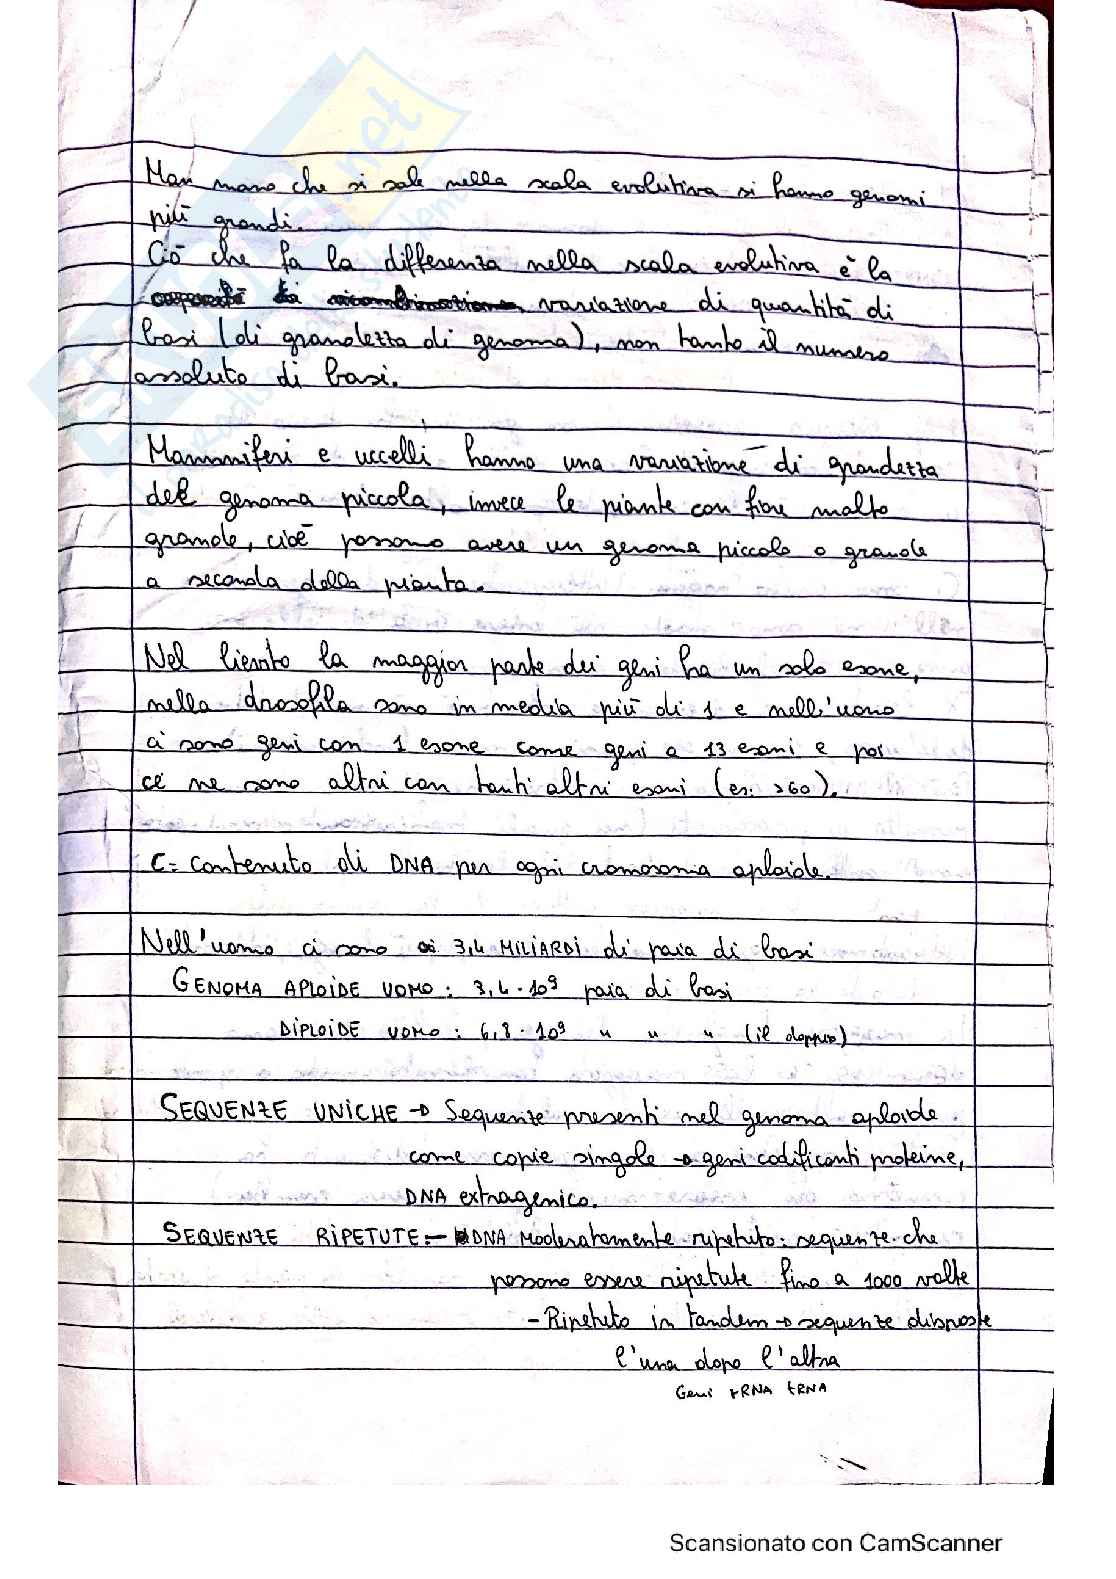 Man mano che si sale nella scala evolutiva si hanno genomi
più grandi.
Ciò che fa la differenza nella scala evolutiva è la
variazione di quantità di
basi (di grandezza di genoma), non tanto il numero
assoluto di basi.
Mammiferi e uccelli hanno una variazione di grandezza
del genoma piccola, invece le piante con fiore molto
grande, cioè possono avere un genoma piccolo o grande
a seconda della pianta.
Nel lievito la maggior parte dei geni ha un solo esone,
nella drosofila sono in media più di 1 e nell'uomo
ci sono geni con 1 esone come geni a 13 esoni e poi
ce ne sono altri con tanti altri esoni (es: >60).
C = contenuto di DNA per ogni cromosoma aploide.
Nell'uomo ci sono 3,4 MILIARDI di paia di basi
GENOMA APLOIDE UOMO : 3,4 · 10⁹ paia di basi
DIPLOIDE UOMO : 6,8 · 10⁹ " " " (il doppio)
SEQUENZE UNICHE → Sequenze presenti nel genoma aploide
come copie singole → geni codificanti proteine,
DNA extragenico.
SEQUENZE RIPETUTE: - DNA Moderatamente ripetuto: sequenze che
possono essere ripetute fino a 1000 volte
- Ripetuto in tandem → sequenze disposte
l'una dopo l'altra
Geni rRNA tRNA
Scansionato con CamScanner